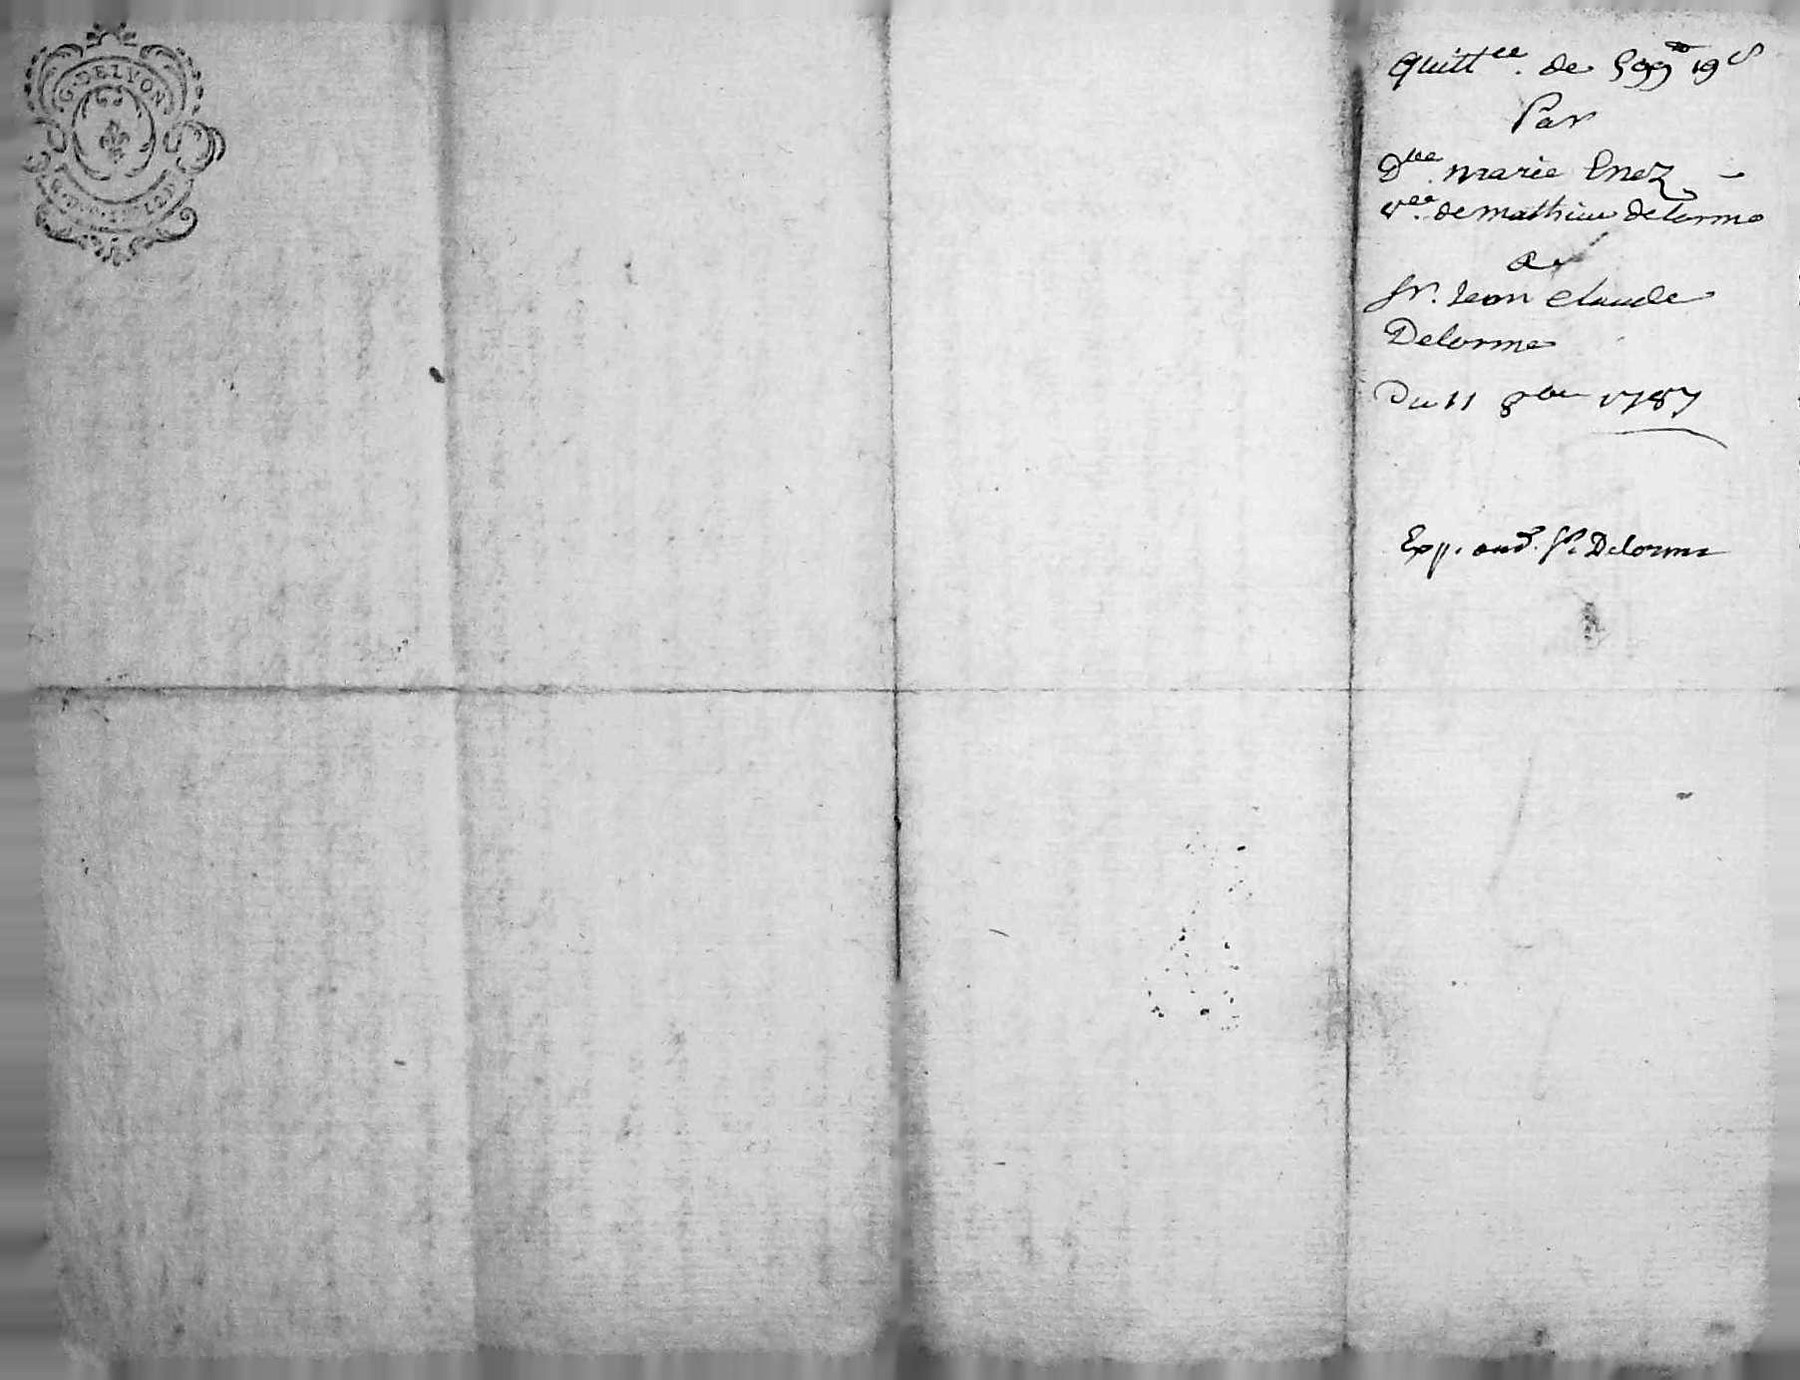 G. DELYON
Quitt.ce de 599 tt 19 s
Par
D.lle marie Enez
v.ve de mathieu delorme
a
sr. Jean claude
Delorme
Du 11 8bre 1787
Exp. aud. Sr. Delorme